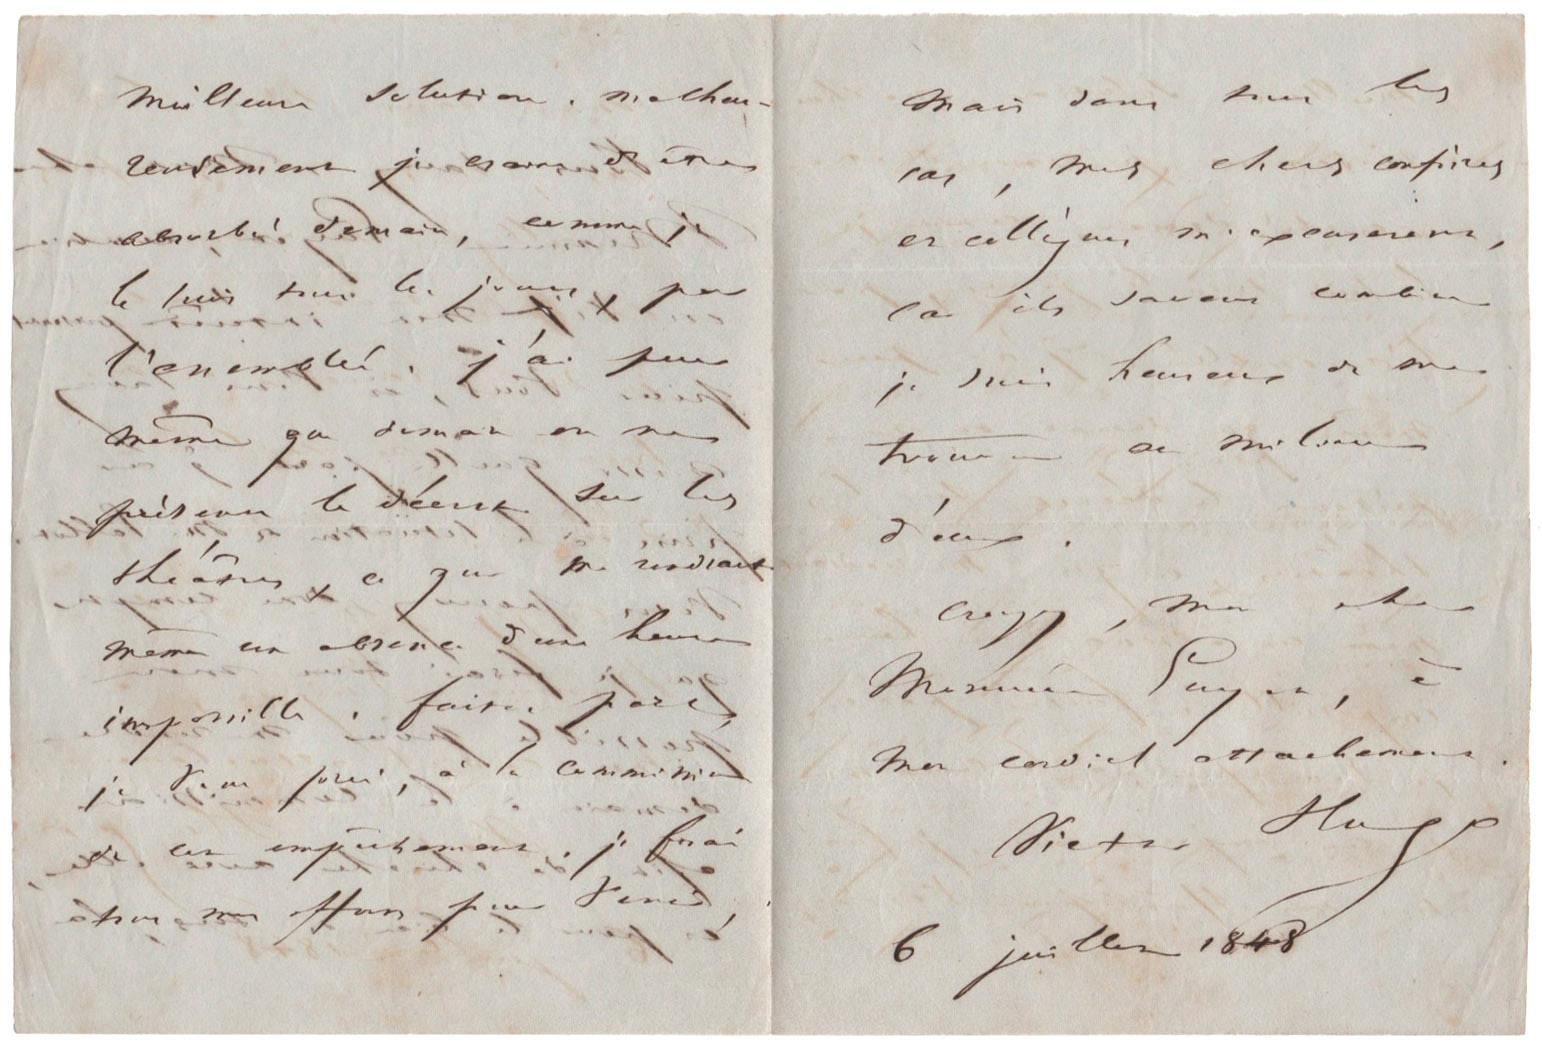 meilleure solution. malheu-
reusement je crains d'être
absorbé demain, comme je
le suis tous les jours, par
l'assemblée. j'ai peur
même que demain on ne
présente le décret sur les
théâtres, ce qui me rendrait
même une absence d'une heure
impossible. faites part,
je vous prie, à la commission
de cet empêchement. je ferai
tous mes efforts pour venir,
mais dans tous les
cas, mes chers confrères
et collègues m'excuseront,
car ils savent combien
je suis heureux de me
trouver au milieu
d'eux.
croyez, mon cher
Monsieur, à
mon cordial attachement.
Victor Hugo
6 juillet 1848